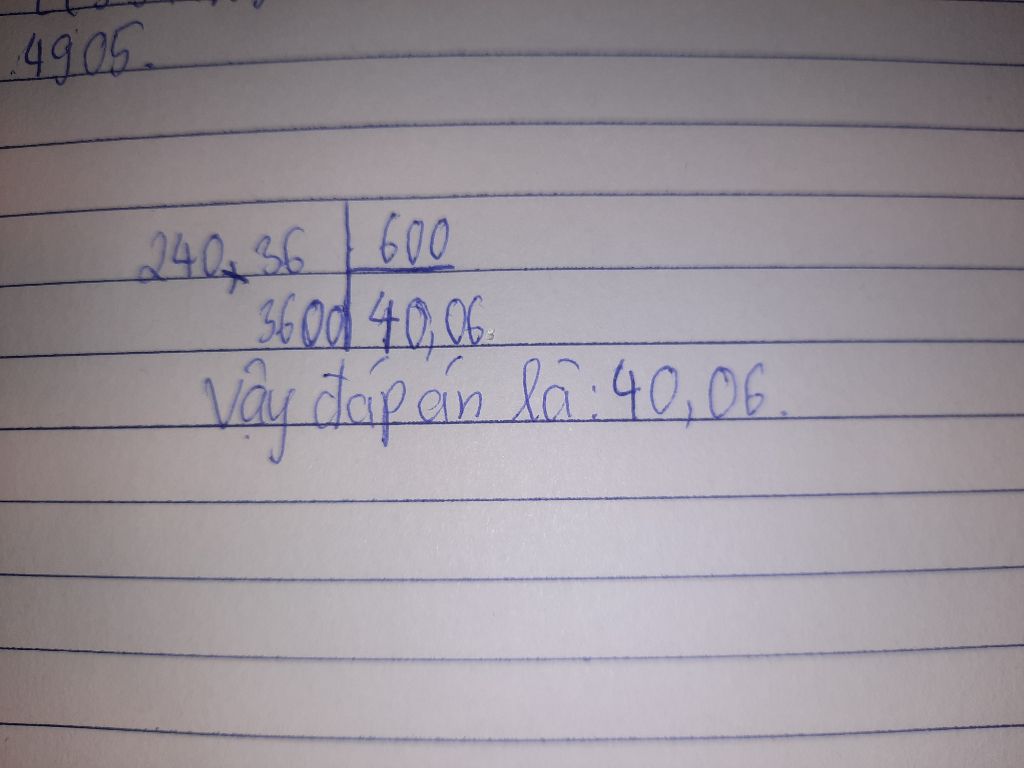 4905.
240,36 600
3600 40,06.
Vậy đáp án là: 40,06.